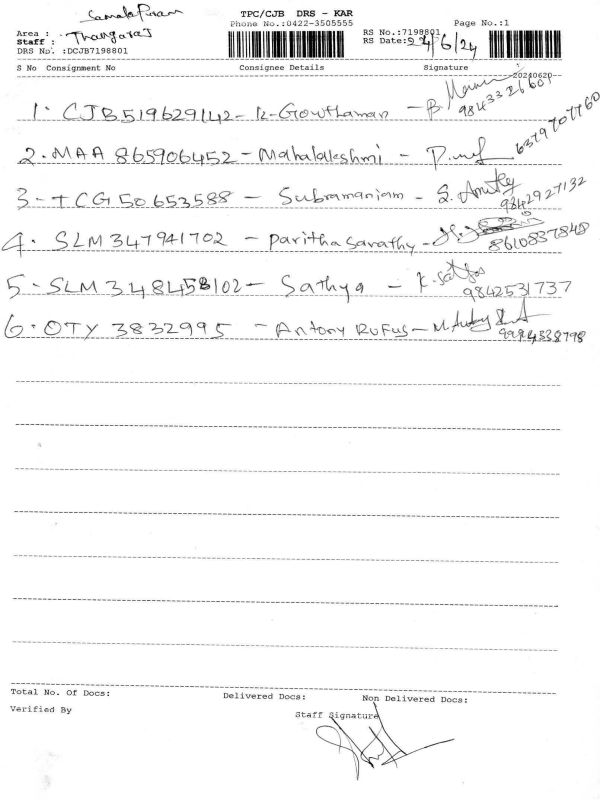 Samalapuram
TPC/CJB DRS - KAR
Phone No.:0422-3505555
Page No.:1
Area :
Staff : Thangaraj
DRS No. :DCJB7198801
RS No.:7198801
RS Date: 24/6/24
S No Consignment No Consignee Details Signature
20240620
1. CJB519629142 - K-Gowthaman - B.
9843326601
2. MAA 865906452 - Mahalakshmi -
6379707760
3 - TCG 50653588 - Subramaniam - S.
9842927132
4. SLM 347941702 - paritha sarathy -
8610837848
5. SLM 348458102 - Sathya - K.
9842531737
6. OTY 3832995 - Antony RUFUS - M.
9994338798
Total No. Of Docs: Delivered Docs: Non Delivered Docs:
Verified By
Staff Signature